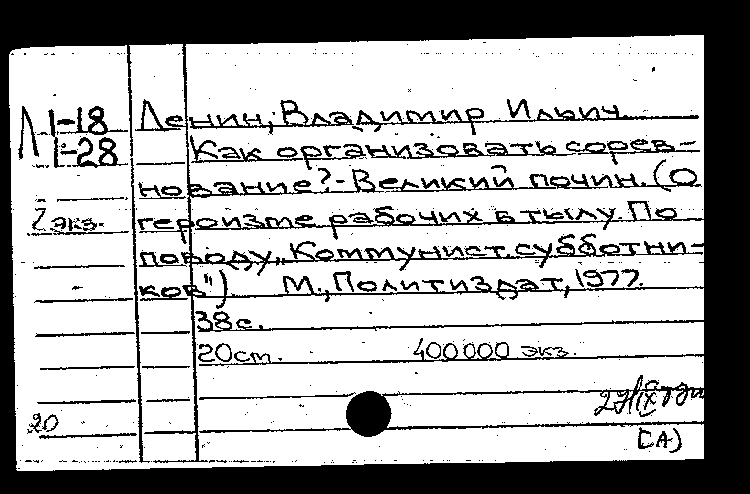 Л 1-18
1-28
Ленин, Владимир Ильич.
Как организовать сорев-
нование?- Великий почин. (О
2 экз.
героизме рабочих в тылу. По
поводу „Коммунист. субботни-
ков") М., Политиздат, 1977.
38с.
20см. 400000 экз.
20
[А)